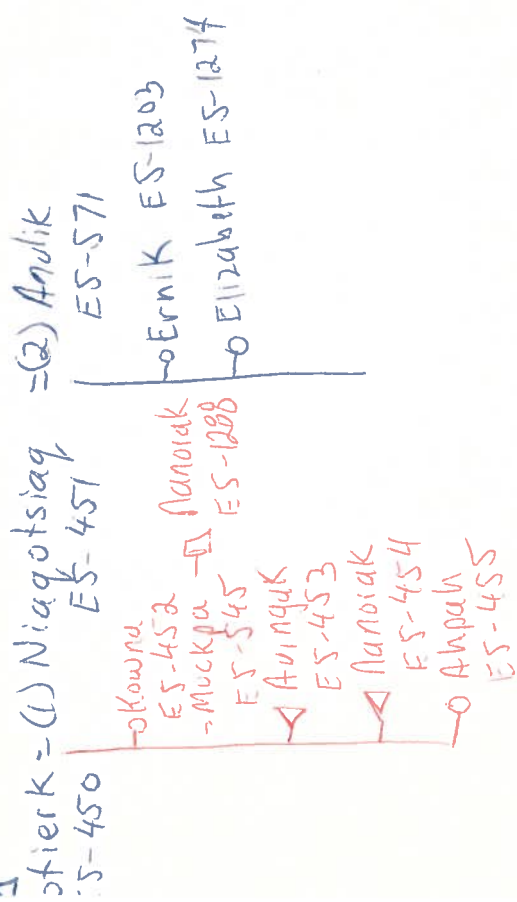 otierk = (1) Niaqotsiaq =(2) Anulik
5-450 E5-451 E5-571
Kowna
E5-452
Muckpa Nanoiak
E5-545 E5-1288
Avinguk
E5-453
Nanoiak
E5-454
Ahpah
E5-455
Ernik E5-1203
Elizabeth E5-1274